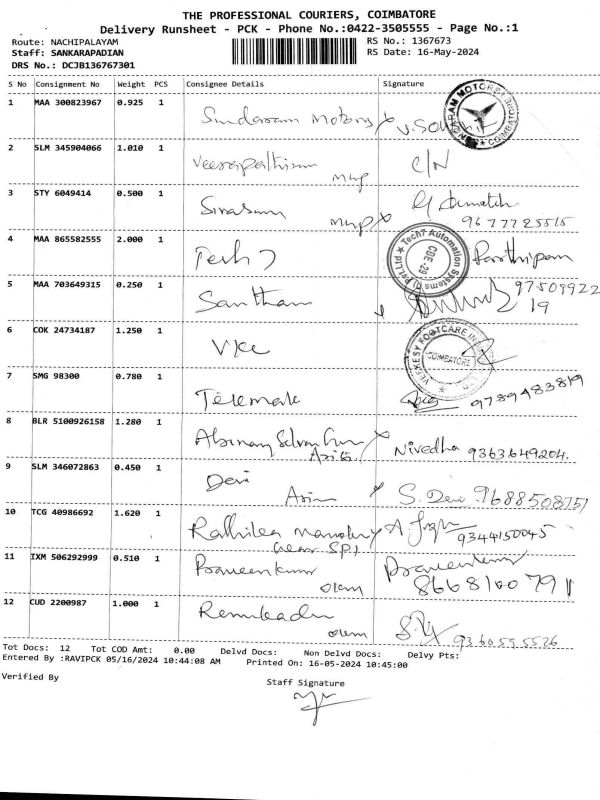 THE PROFESSIONAL COURIERS, COIMBATORE
Delivery Runsheet - PCK - Phone No.:0422-3505555 - Page No.:1
Route: NACHIPALAYAM
RS No.: 1367673
Staff: SANKARAPADIAN
RS Date: 16-May-2024
DRS No.: DCJB136767301
S No Consignment No Weight PCS Consignee Details Signature
1 MAA 300823967 0.925 1 Sundaram Motors
COIMBATORE
2 SLM 345904066 1.010 1 C/N
3 STY 6049414 0.500 1 Sivasam
9677725515
4 MAA 865582555 2.000 1 Tech 7 Parthipan
Tech7 Automation Systems (I) Pvt Ltd CBE-29
5 MAA 703649315 0.250 1 Santham 97509922
19
6 COK 24734187 1.250 1 VKC
VEEKESY FOOTCARE COIMBATORE
7 SMG 98300 0.780 1 Telemark 9789483819
8 BLR 5100926158 1.280 1 Nivedha 9363649204.
9 SLM 346072863 0.450 1 Devi S. Devi 9688508751
10 TCG 40986692 1.620 1 9344150045
near SPI
11 IXM 506292999 0.510 1 Praveenkumar Praveenkumar
8668100791
12 CUD 2200987 1.000 1 9360595526
Tot Docs: 12 Tot COD Amt: 0.00 Delvd Docs: Non Delvd Docs: Delvy Pts:
Entered By :RAVIPCK 05/16/2024 10:44:08 AM Printed On: 16-05-2024 10:45:00
Verified By
Staff Signature